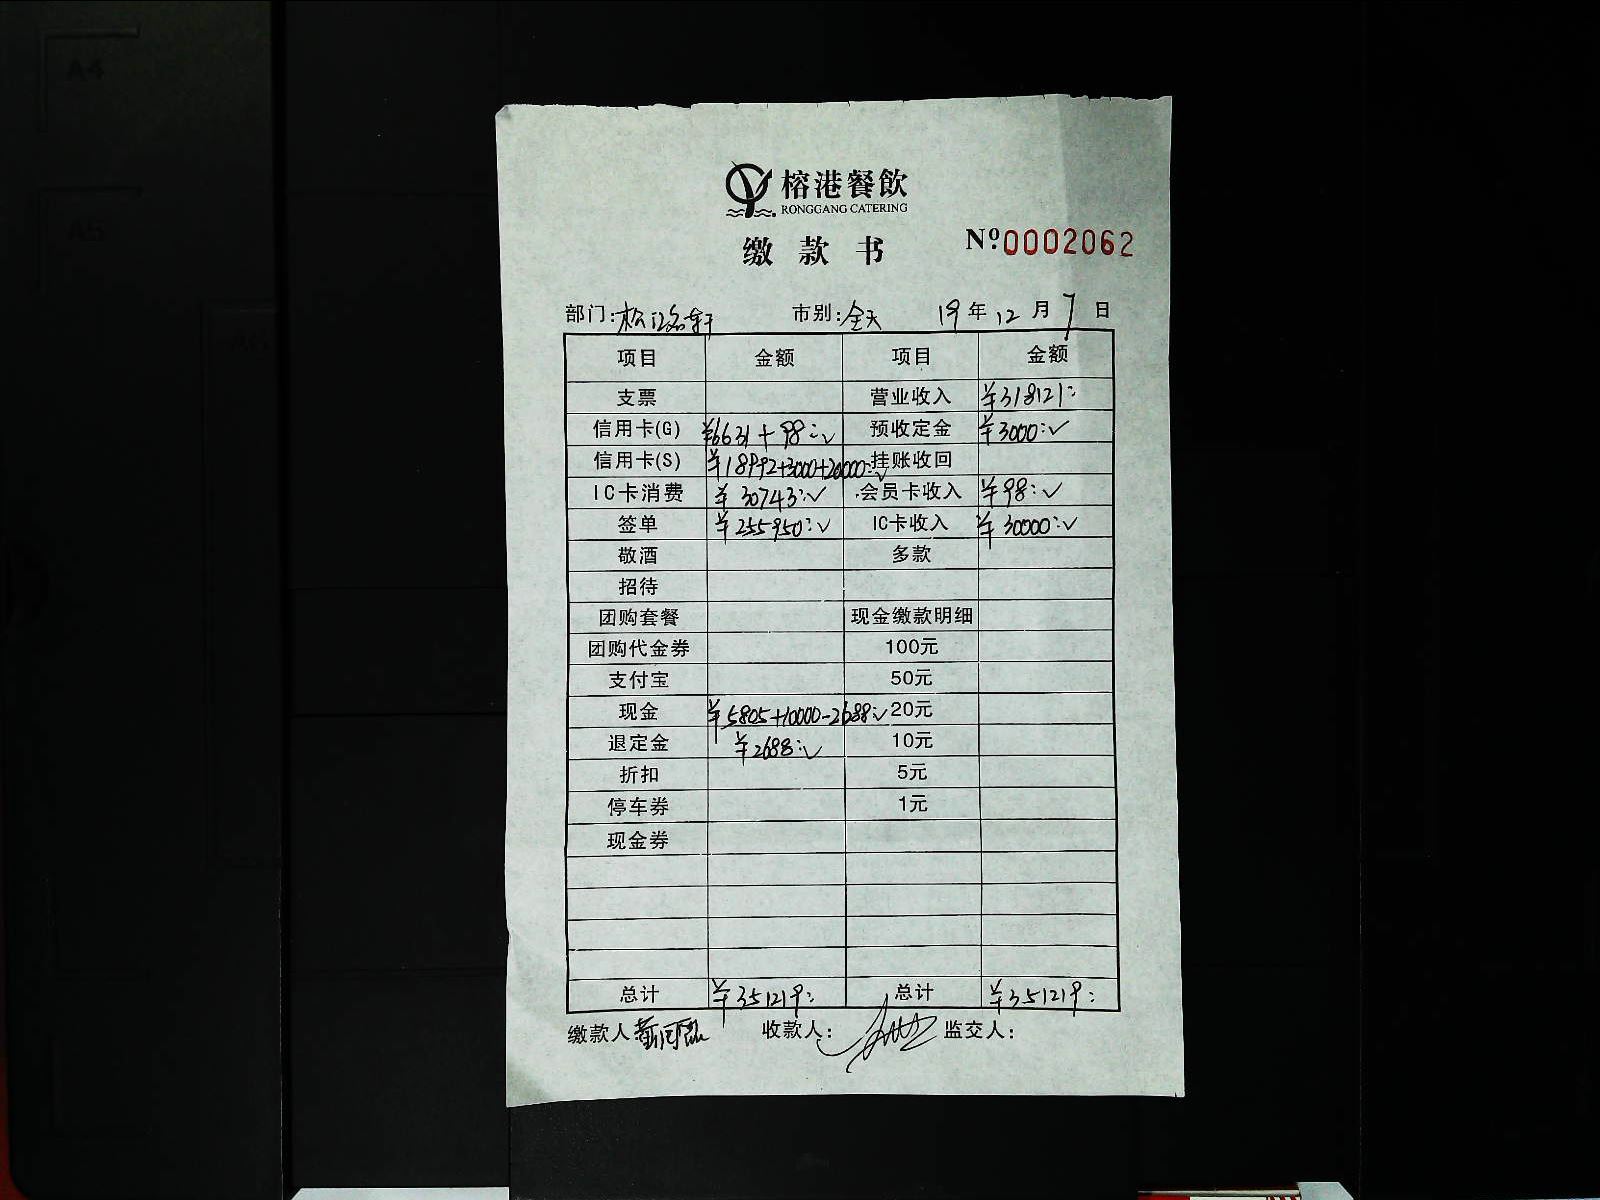 A4
A5
榕港餐飲
RONGGANG CATERING
缴款书
Nº:0002062
部门:松江名轩 市别:全天 19年12月7日
项目 金额 项目 金额
支票 营业收入 ¥318121:
信用卡(G) ¥6631+98:✓ 预收定金 ¥3000:✓
信用卡(S) ¥18992+3000+20000:✓ 挂账收回
IC卡消费 ¥30743:✓ 会员卡收入 ¥98:✓
签单 ¥255950:✓ IC卡收入 ¥30000:✓
敬酒 多款
招待
团购套餐 现金缴款明细
团购代金券 100元
支付宝 50元
现金 ¥5805+10000-2688:✓ 20元
退定金 ¥2688:✓ 10元
折扣 5元
停车券 1元
现金券
总计 ¥351219: 总计 ¥351219:
缴款人 收款人: 监交人: